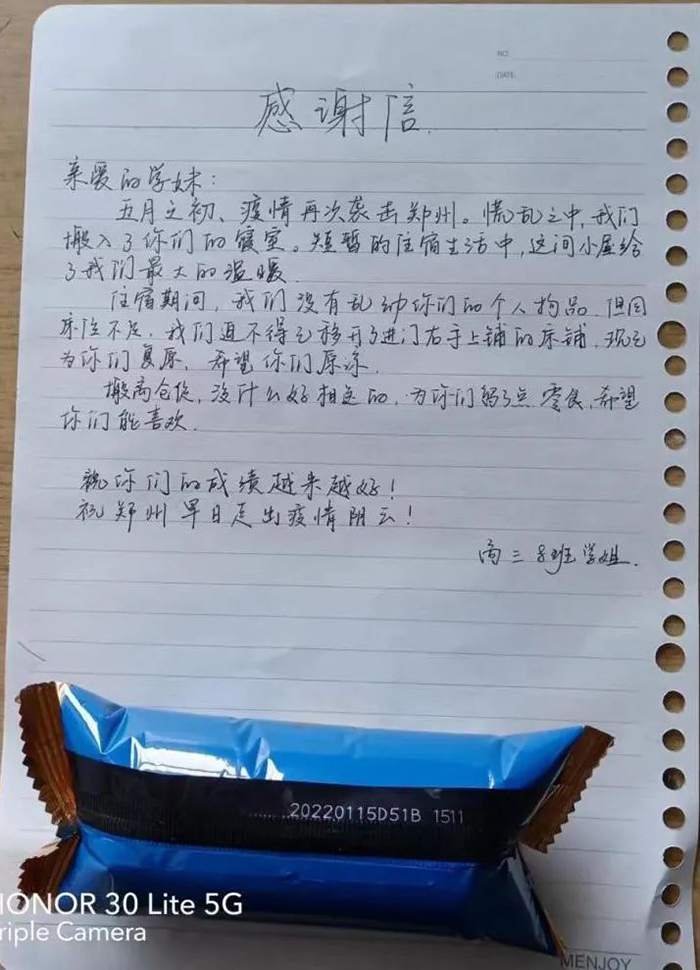 NO.
DATE.
感谢信.
亲爱的学妹：
五月之初、疫情再次袭击郑州。慌乱之中，我们
搬入了你们的寝室。短暂的住宿生活中，这间小屋给
了我们最大的温暖.
住宿期间，我们没有乱动你们的个人物品.但因
床位不足.我们迫不得已移开了进门右手上铺的床铺.现已
为你们复原.希望你们原谅.
搬离仓促，没什么好相送的.为你们留了点零食.希望
你们能喜欢.
祝你们的成绩越来越好！
祝郑州早日走出疫情阴云！
高三8班学姐.
20220115D51B 1511
HONOR 30 Lite 5G
Triple Camera
MENJOY